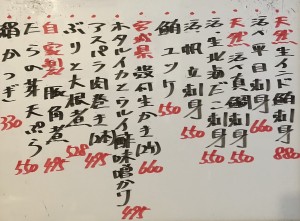 天然 生インド鮪刺身 880
活〆平目刺身 660
天然 活〆真鯛刺身 550
活 生北海だこ刺身 550
活 帆立刺身 550
鮪ユッケ 550
宮城県 殻付生かき(1ヶ) 660
ホタルイカとウルイ酢味噌かけ 495
アスパラ肉巻き(1本) 495
ぶりと大根煮 528
自家製 豚角煮 495
たらの芽天ぷら 550
絹かつぎ 330